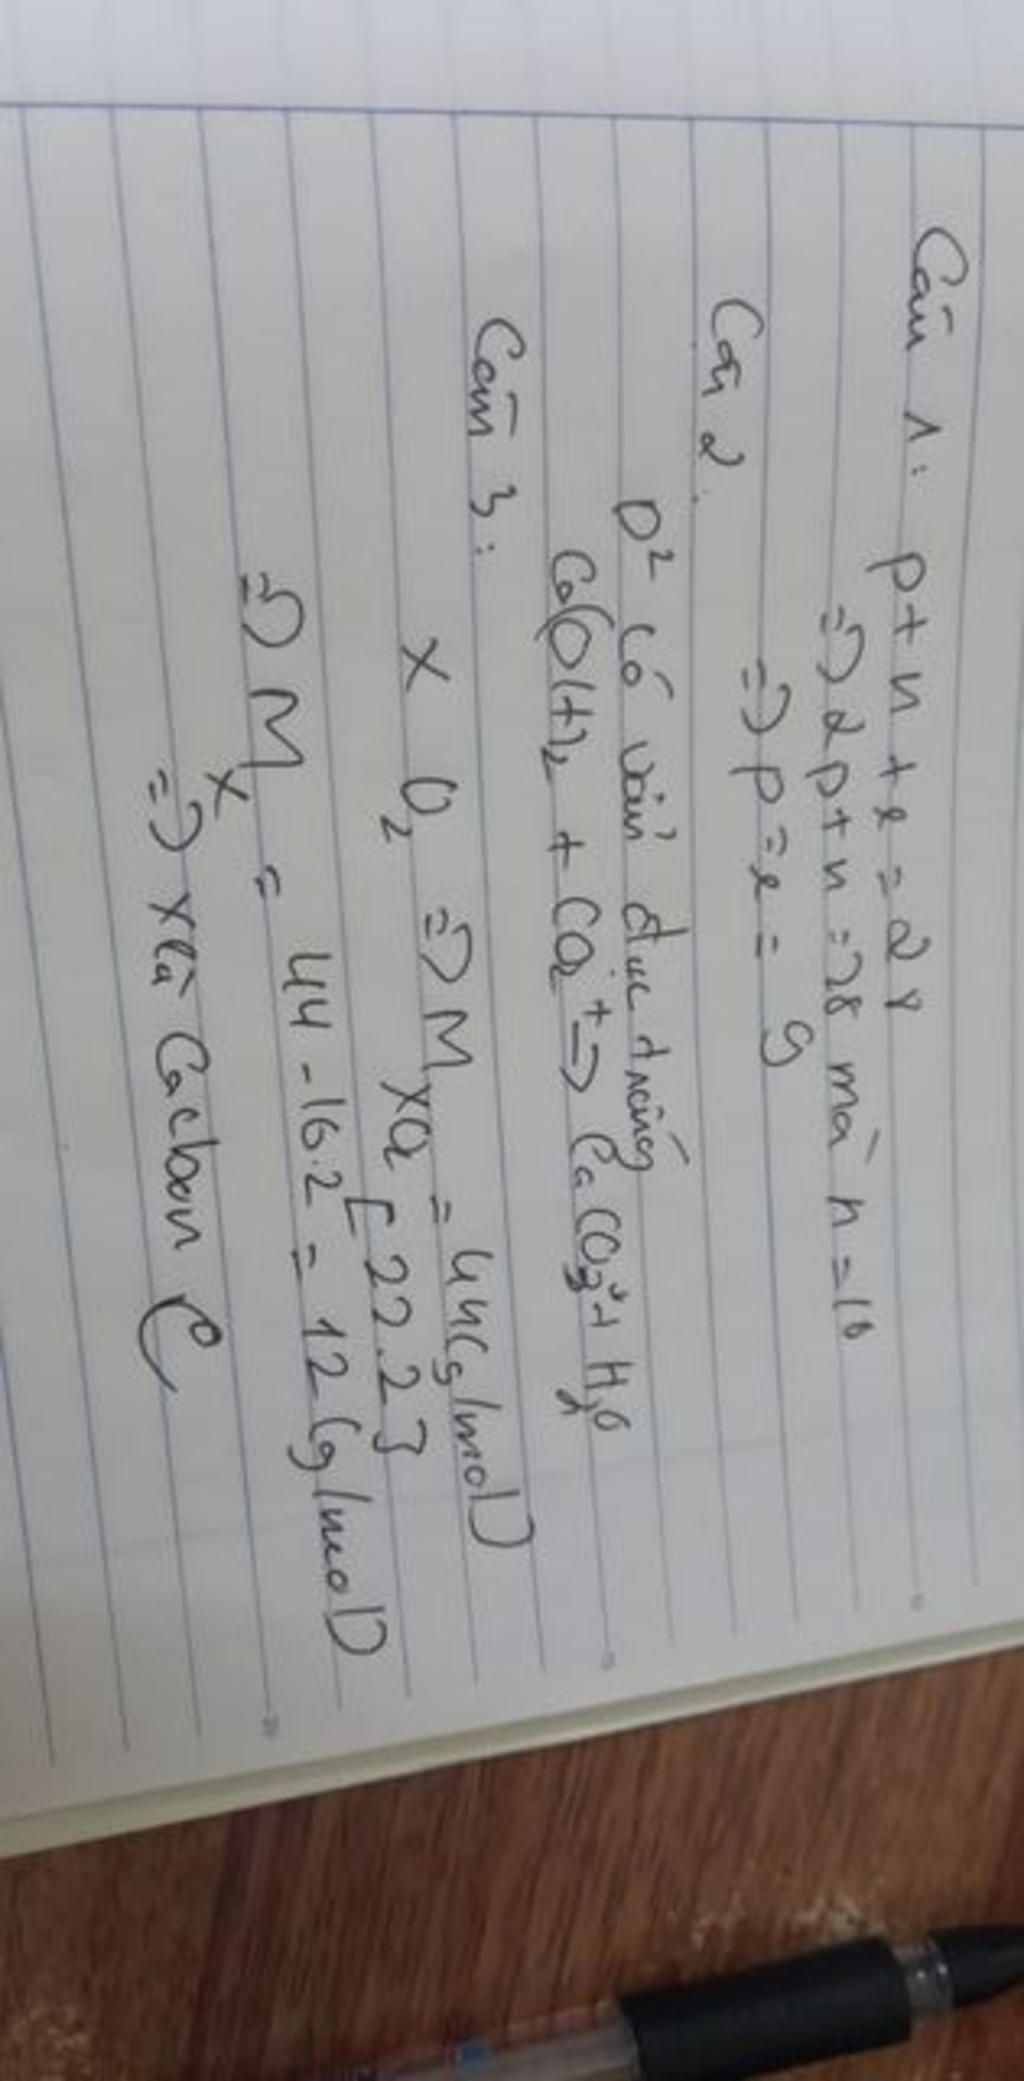 Câu 1: p + n + e = 28
=> 2p + n = 28 mà n = 10
=> p = e = 9
Câu 2:
D² Có vẩn đục trắng
Ca(OH)₂ + CO₂ => CaCO₃ + H₂O
Câu 3:
X O₂ => M XO₂ = 44 (g/mol)
[22.2]
=> M X = 44 - 16.2 = 12 (g/mol)
=> X là Cacbon C